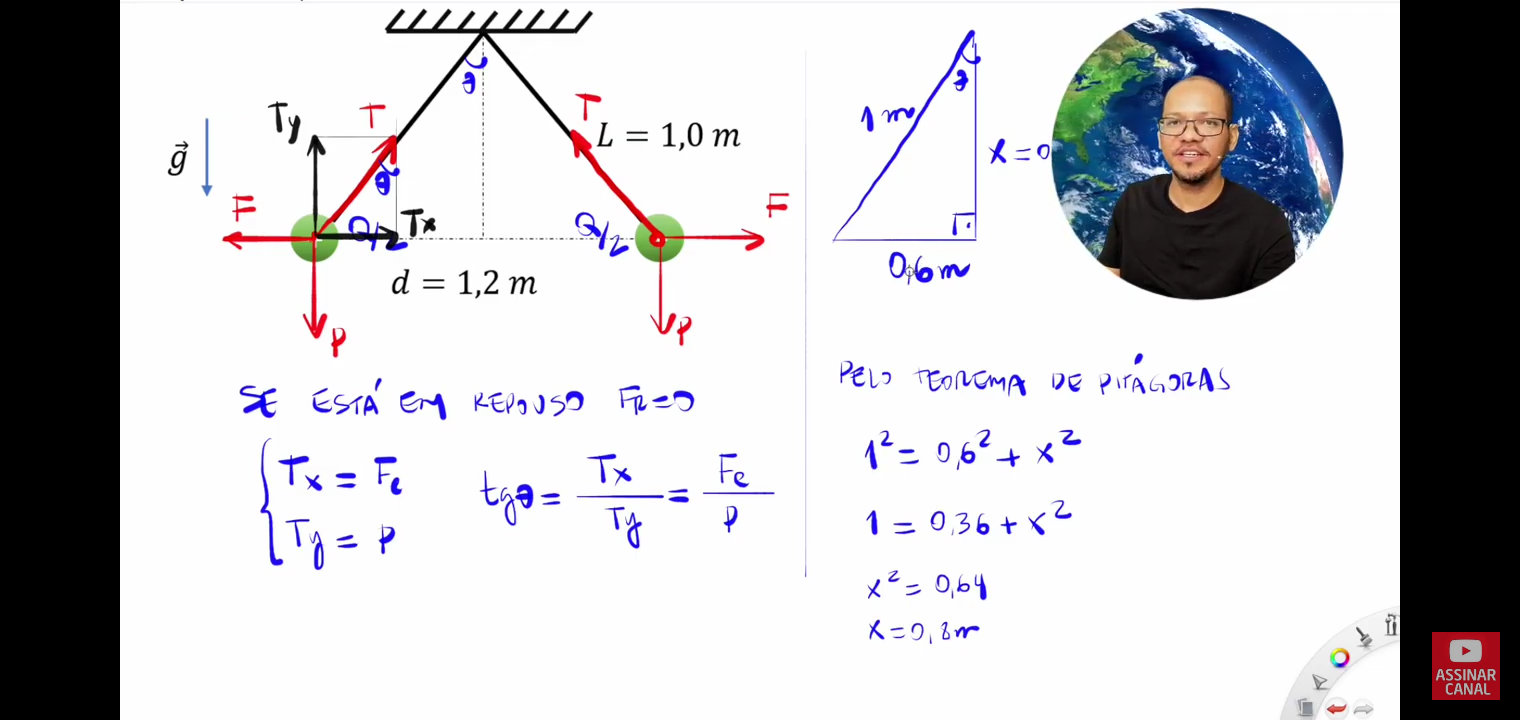 Ty
T
T
L = 1,0 m
g⃗
θ
θ
F
F
Q/2
Tx
Q/2
d = 1,2 m
P
P
SE ESTÁ EM REPOUSO FR=0
Tx = Fe
Ty = P
tgθ = Tx/Ty = Fe/P
1 m
θ
x = 0
0,6 m
PELO TEOREMA DE PITÁGORAS
1² = 0,6² + x²
1 = 0,36 + x²
x² = 0,64
x = 0,8m
ASSINAR
CANAL